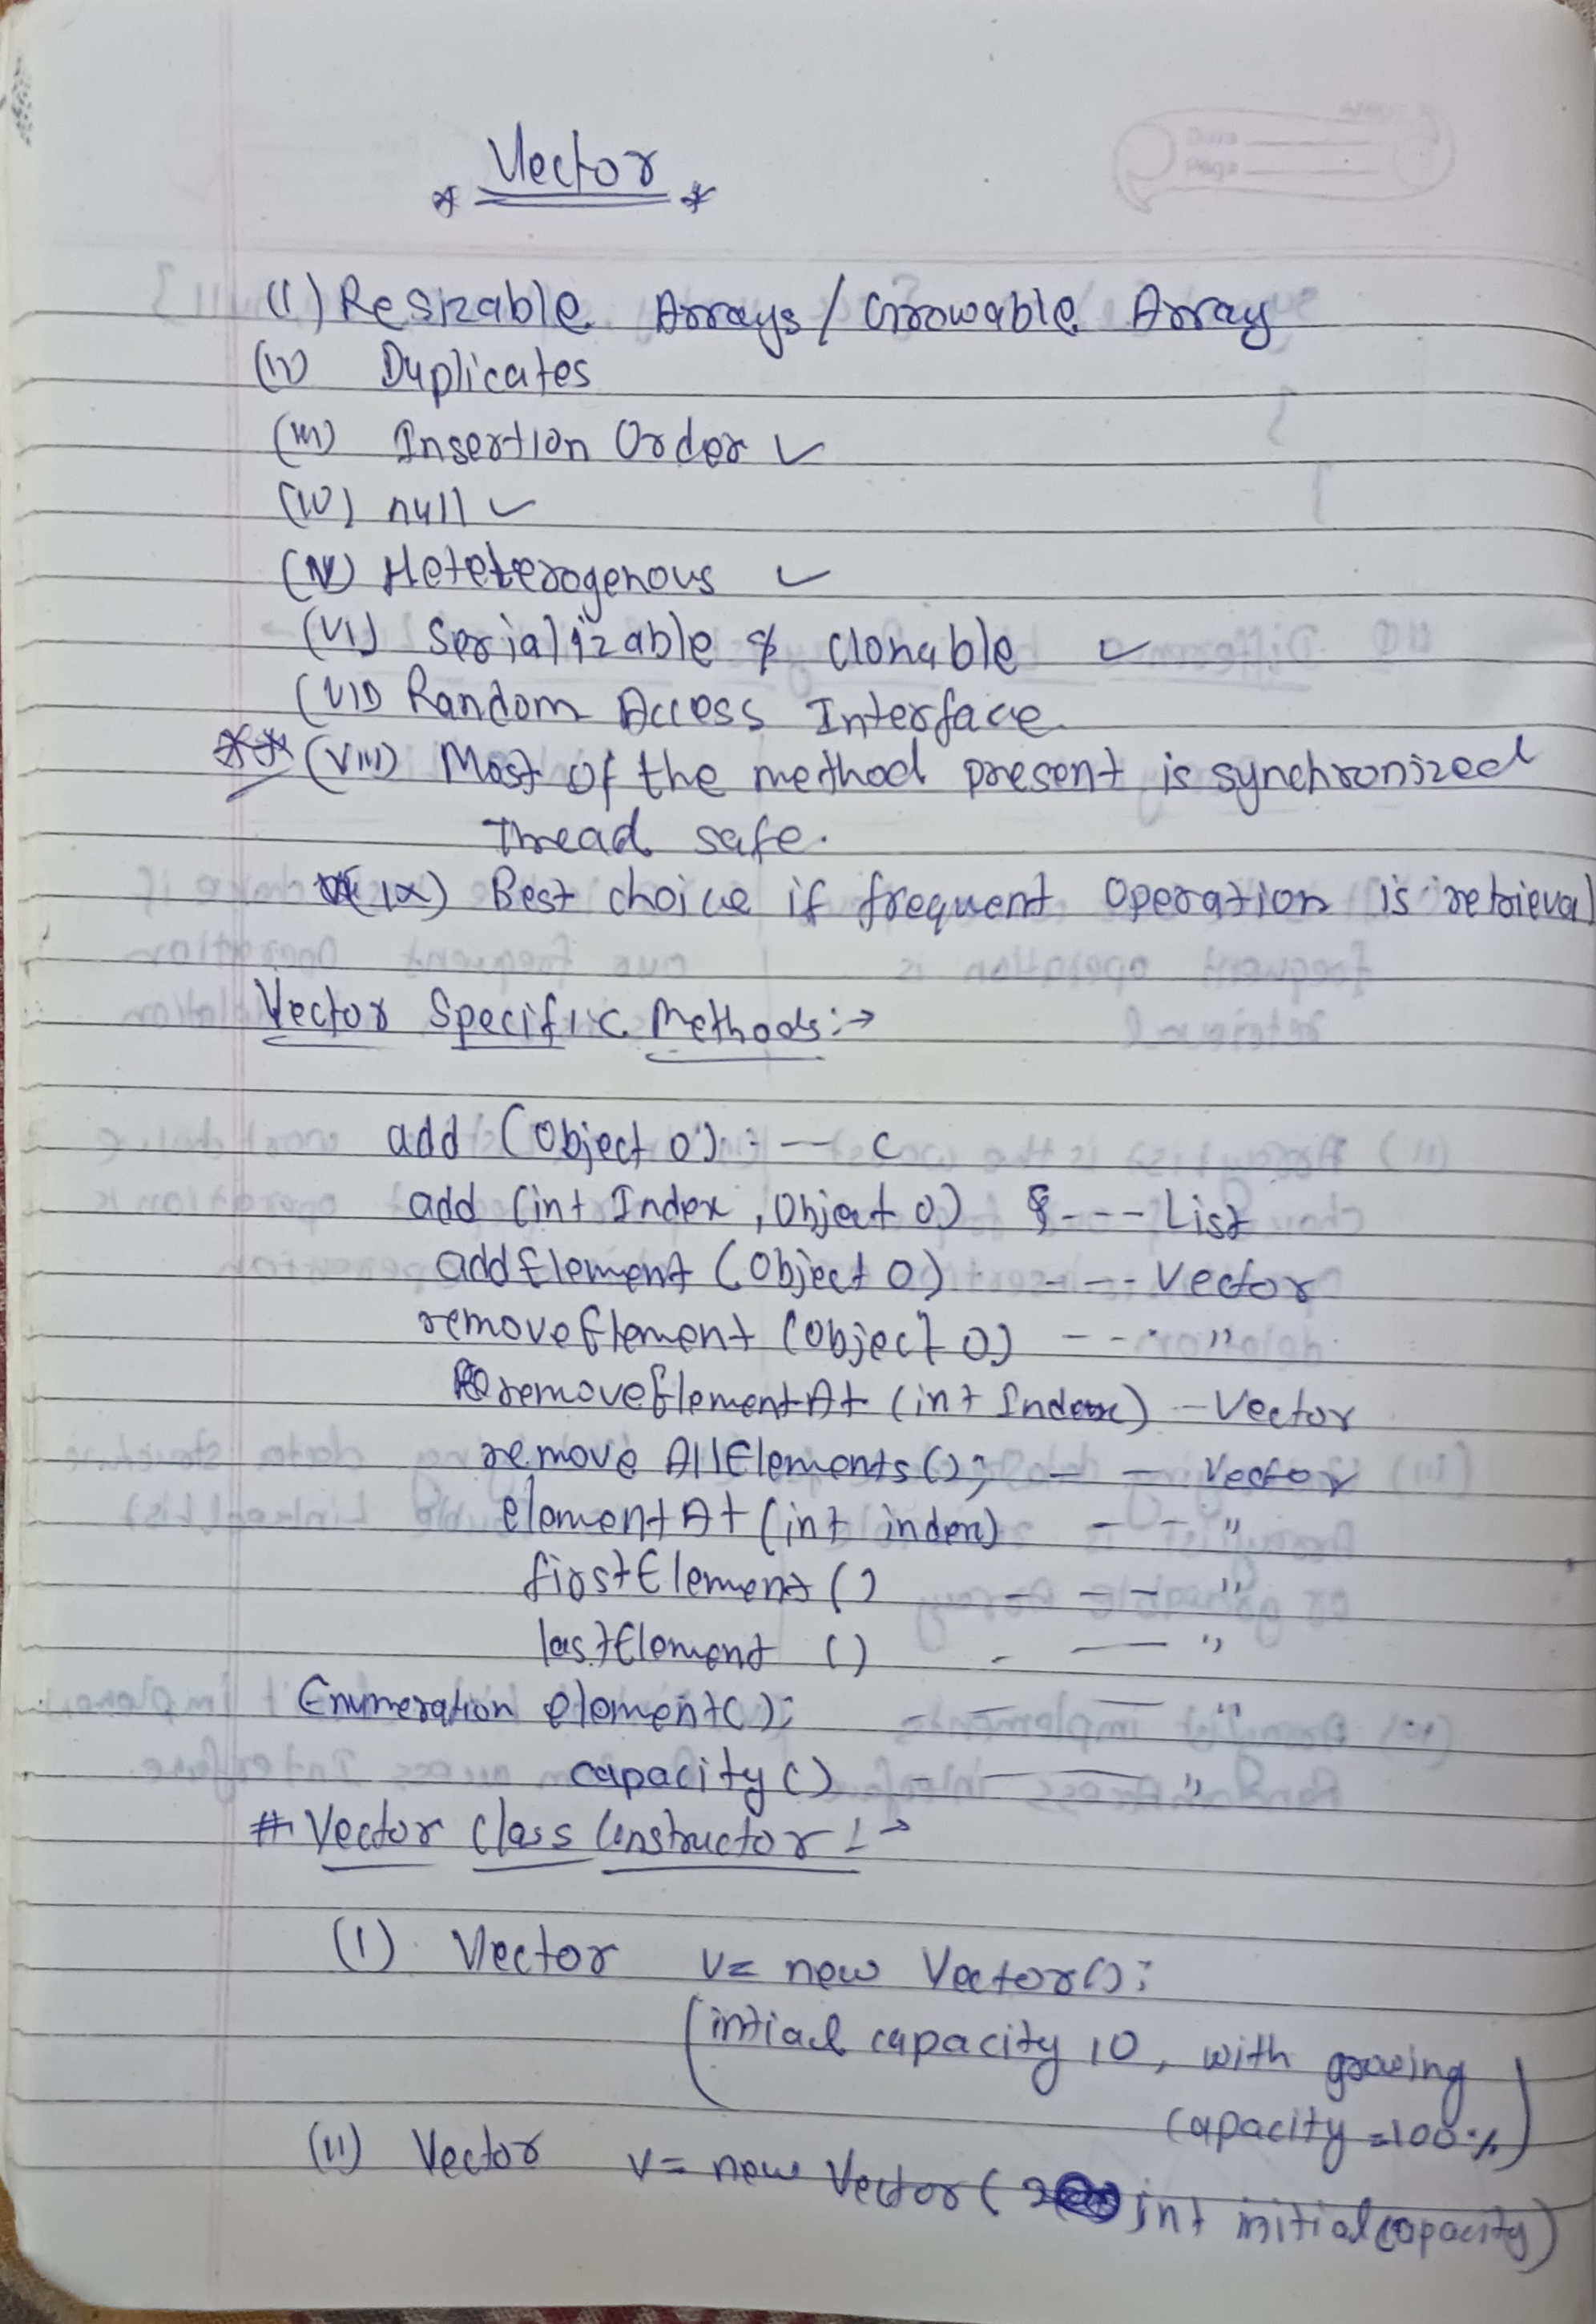 * Vector *
(I) Resizable Arrays / Growable Array
(II) Duplicates
(III) Insertion Order ✓
(IV) null ✓
(V) Heteterogenous ✓
(VI) Serializable & Clonable ✓
(VII) Random Access Interface
** (VIII) Most of the method present is synchronized
Thread safe.
(IX) Best choice if frequent operation is retrieval
Vector Specific Methods:→
add (Object o) - — C
add (int Index, Object o) --- List
addElement (Object o) --- Vector
removeElement (Object o) --- "
removeElementAt (int Index) - Vector
remove AllElements(); — — Vector
elementAt (int index) — — "
firstElement () - — — "
lastElement () - — "
Enumeration element(); - — — "
capacity() - — "
# Vector Class Constructor :→
(I) Vector v= new Vector();
(intial capacity 10, with growing
capacity =100%)
(II) Vector v= new Vector( int initialcapacity)